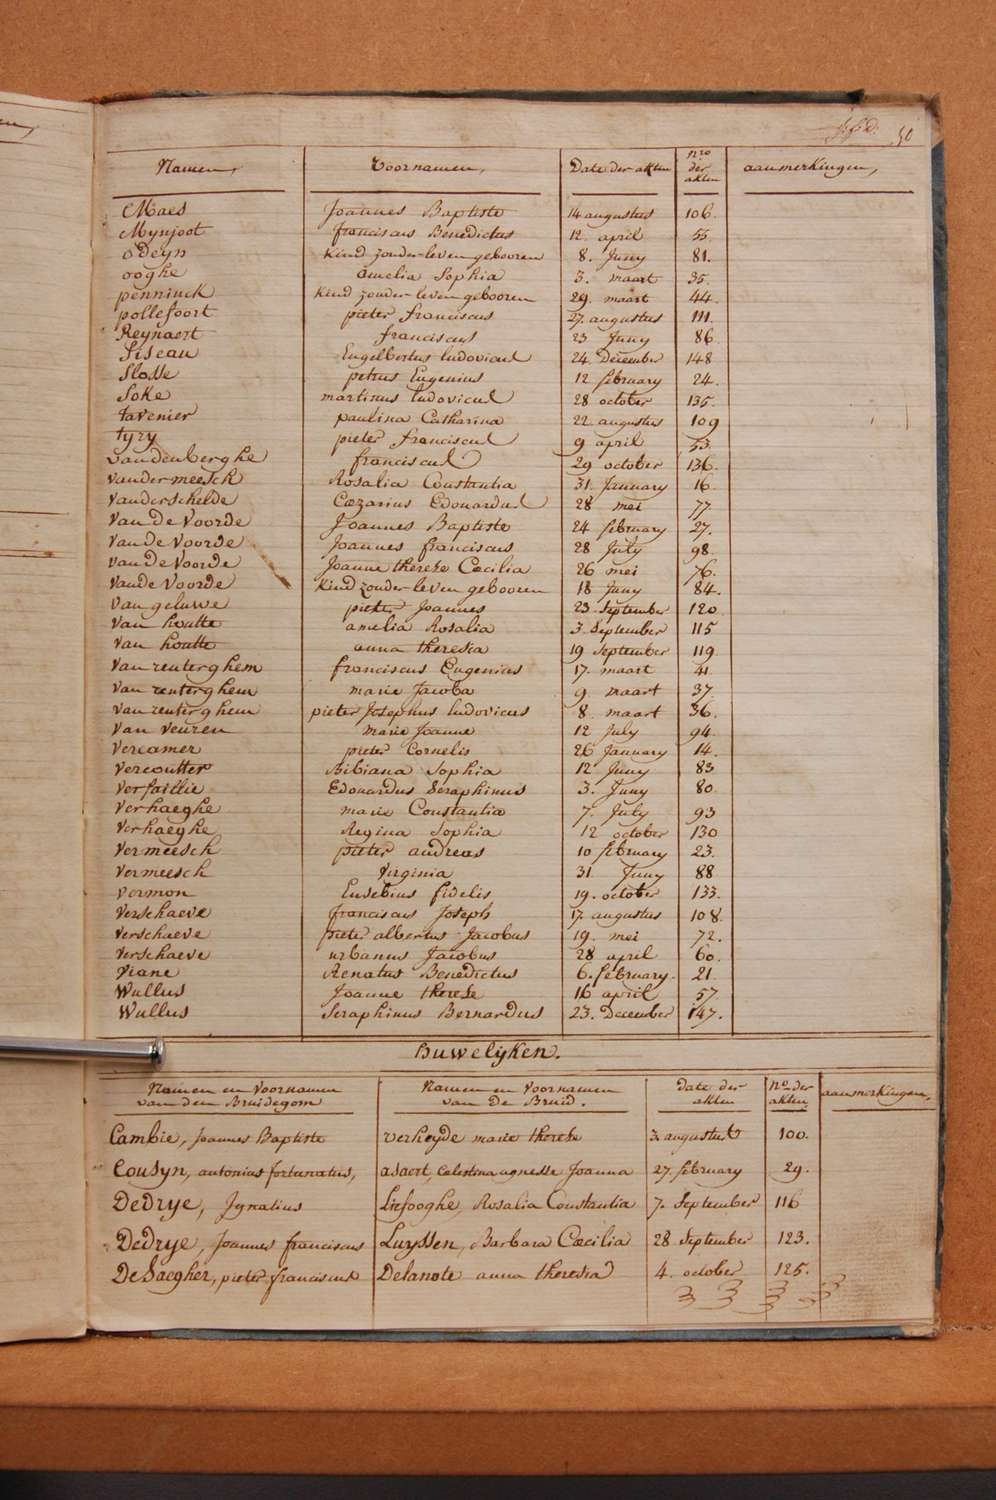 50
Namen, Voornamen, Date der akten nro der akten aanmerkingen,
Maes Joannes Baptiste 14 augustus 106.
Mynjoot franciscus Benedictus 12. april 55.
odeyn kind zonder leven gebooren 8. Juny 81.
ooghe amelia Sophia 3. maart 35.
penninck kind zonder leven gebooren 29. maart 44.
pollefoort pieter franciscus 27. augustus 111.
Reynaert franciscus 23 Juny 86
Siseau Engelbertus ludovicus 24. December 148
Slosse petrus Eugenius 12 february 24.
Soke martinus ludovicus 28 october 135.
tavenier paulina Catharina 22 augustus 109
tyry pieter franciscus 9 april 53.
vandenberghe franciscus 29 october 136.
vandermeesch Rosalia Constantia 31. January 16.
vanderschelde Cæzarius Edouardus 28 mei 77.
Van De Voorde Joannes Baptiste 24 february 27.
van De Voorde Joannes franciscus 28 July 98.
van De Voorde Joanne therese Cæcilia 26 mei 76.
vande Voorde kind zonder leven gebooren 18 Juny 84.
Van geluwe pieter Joannes 23. September 120
Van houtte amelia Rosalia 3. September 115
Van houtte anna theresia 19 September 119
Van renterghem franciscus Eugenius 17. maart 41
Van renterghem marie Jacoba 9. maart 37.
van renterghem pieter Josephus ludovicus 8. maart 36.
Van Veuren marie Joanne 12 July 94.
Vercamer pieter Cornelis 26 January 14.
Vercoutter Bibiana Sophia 12 Juny 83
Verfaillie Edouardus Seraphinus 3. Juny 80.
Verhaeghe marie Constantia 7. July 93
Verhaeghe Regina Sophia 12 october 130
Vermeesch pieter andreas 10 february 23.
Vermeesch Virginia 31. Juny 88
vermon Eusebius fidelis 19. october 133.
Verschaeve franciscus Joseph 17. augustus 108.
Verschaeve pieter albertus Jacobus 19. mei 72.
Verschaeve urbanus Jacobus 28 april 60.
Viane Renatus Benedictus 6. february. 21.
Wullus Joanne therese 16 april 57.
Wullus Seraphinus Bernardus 23. December 147.
Huwelyken.
Namen en Voornamen van den Bruidegom Namen en Voornamen van De Bruid. Date der akten no der akten aanmerkingen,
Cambie, Joannes Baptiste verheyde marie therese 3. augustus 100.
Cousyn, antonius fortunatus, asaert, Celestina agnesse Joanna 27. february 29.
Dedrye, Ignatius Liefooghe, Rosalia Constantia 7. September 116
Dedrye, Joannes franciscus Luyssen, Barbara Cæcilia 28 September 123.
De Saegher, pieter franciscus Delanote anna theresia 4. october 125.